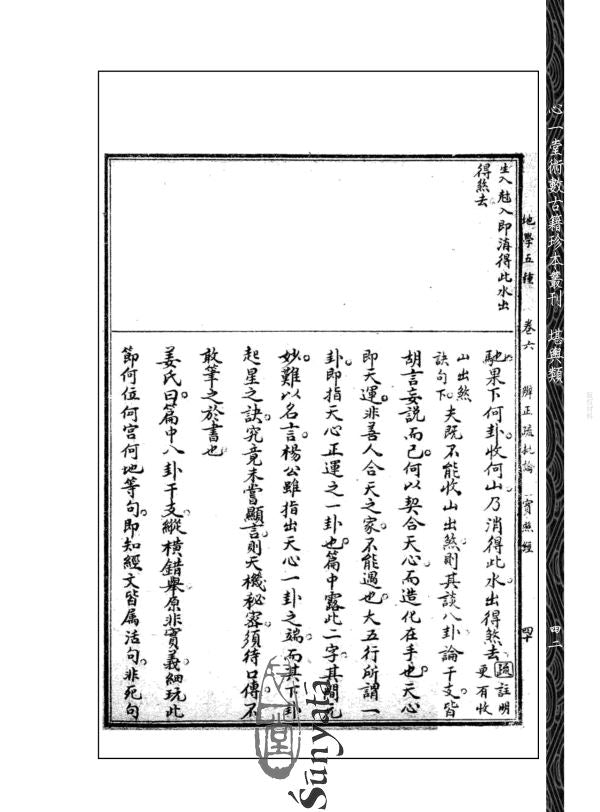 心一堂術數古籍珍本叢刊 堪輿類
四二
地學五種 卷六 辨正疏批論 寶照經 四十
生入尅入即消得此水出
得煞去
馳果下何卦收何山乃消得此水出得煞去疏註明
更有收
山出煞
訣句下夫既不能收山出煞則其談八卦論干支皆
胡言妄說而已何以契合天心而造化在手也天心
即天運非善人合天之家不能遇也大五行所謂一
卦即指天心正運之一卦也篇中露此二字其間元
妙難以名言楊公雖指出天心一卦之端而其下卦
起星之訣究竟未嘗顯言則天機秘密須待口傳不
敢筆之於書也
姜氏曰篇中八卦干支縱橫錯舉原非實義細玩此
節何位何宮何地等句即知經文皆屬活句非死句
心一堂
Śūnyatā